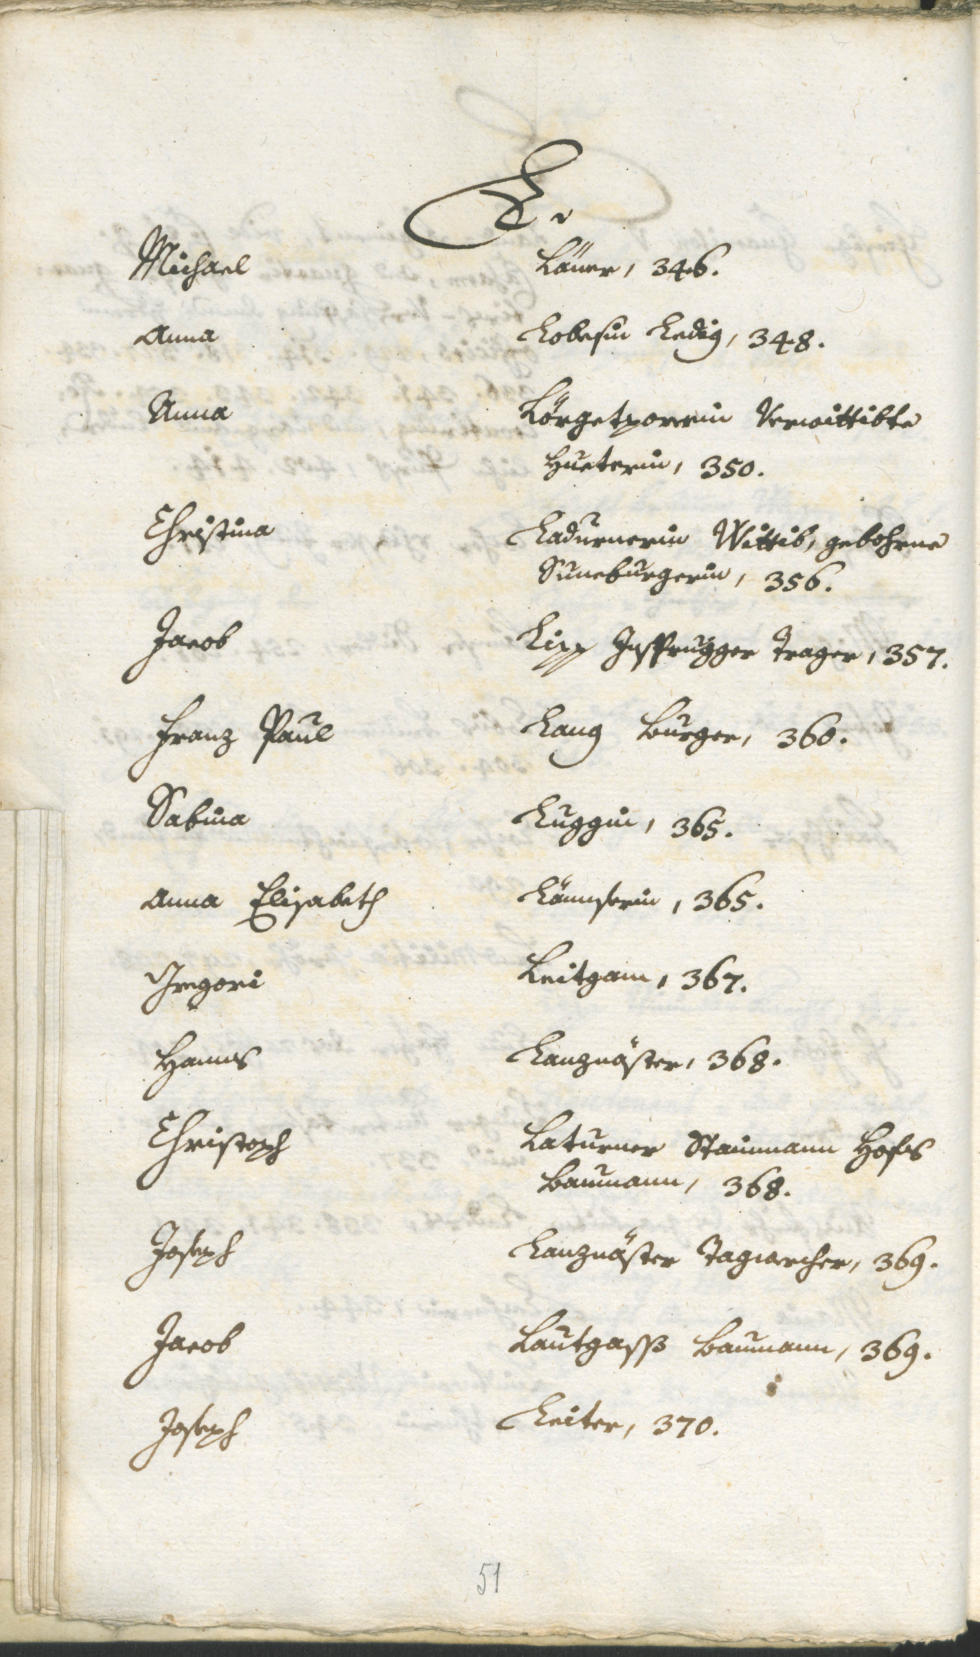 L.
Michael Läner, 346.
Anna Lobesin Ledig, 348.
Anna Lörgetporerin Verwittibte
Hueterin, 350.
Christina Ladurnerin Wittib, gebohrne
Süneburgerin, 356.
Jacob Lipp Insprugger Trager, 357.
Franz Paul Lang Burger, 360.
Sabina Luggin, 365.
Anna Elisabeth 365.
Gregori Leitgam, 367.
Hanns Langnäster, 368.
Christoph Laturner Stainmann Hofs
Baumann, 368.
Joseph Langnäster Tagwercher, 369.
Jacob Lautgasß Baumann, 369.
Joseph Leiter, 370.
51